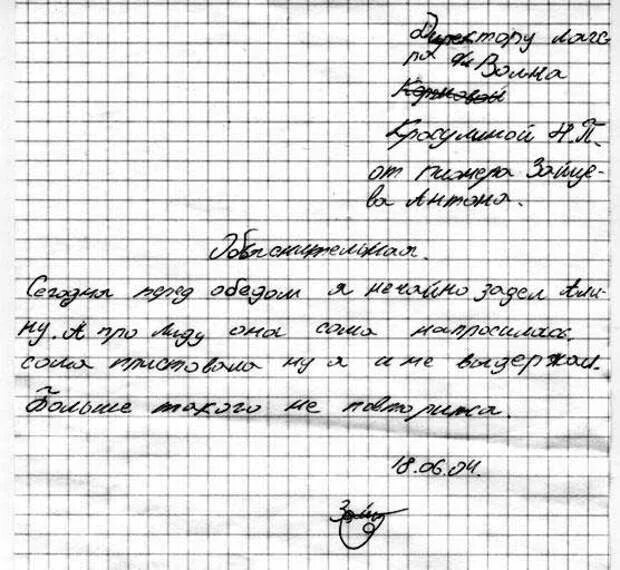 Директору лаге-
ря д/л Волна
Красулиной Н.П.
от пионера Зайце-
ва Антона.
Объяснительная.
Сегодня перед обедом я нечайно задел Али-
ну. А про Лиду она сама напросилась.
сама пристовала ну я и не выдержал.
Больше такого не повторица.
18.06.04.